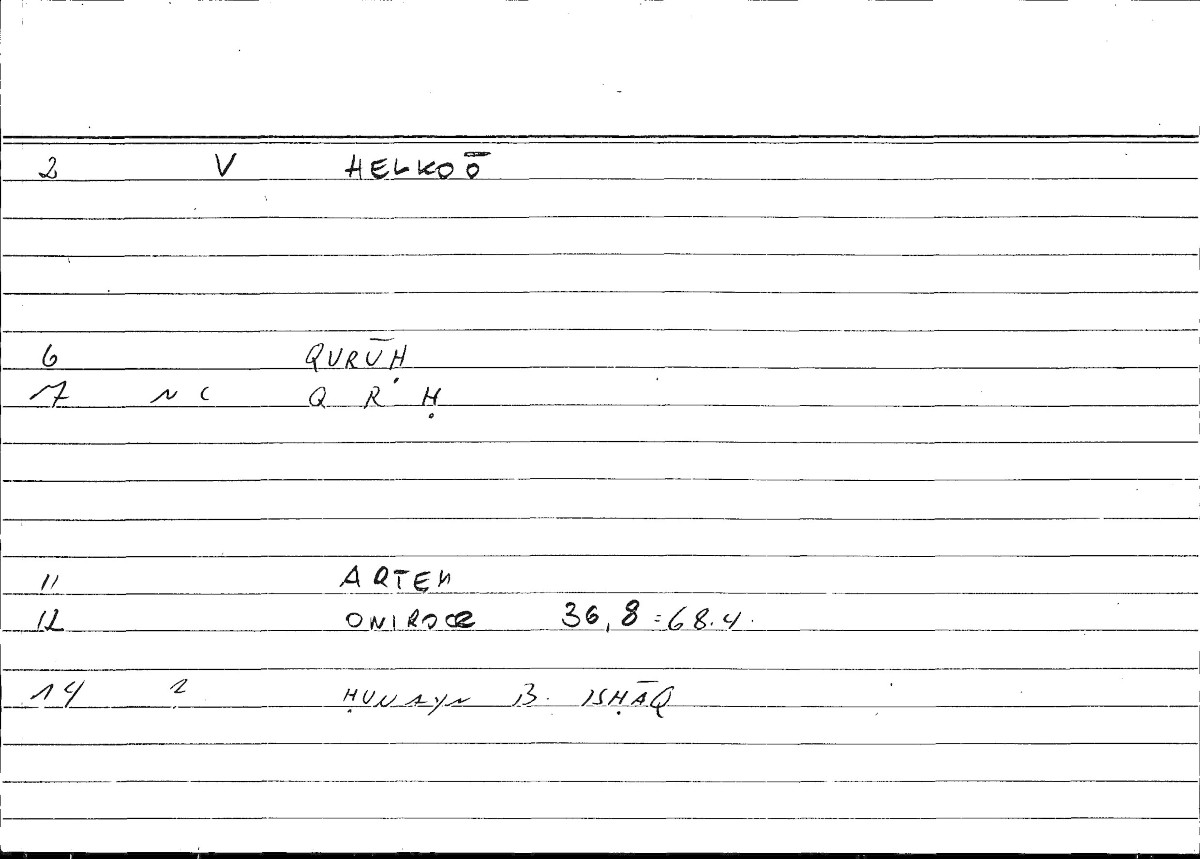 2 V HELKOŌ
6 QURŪḤ
7 N C Q R Ḥ
11 ARTEM
12 ONIROCR 36,8 = 68.4.
14 2 ḤUNAYN B. ISḤĀQ